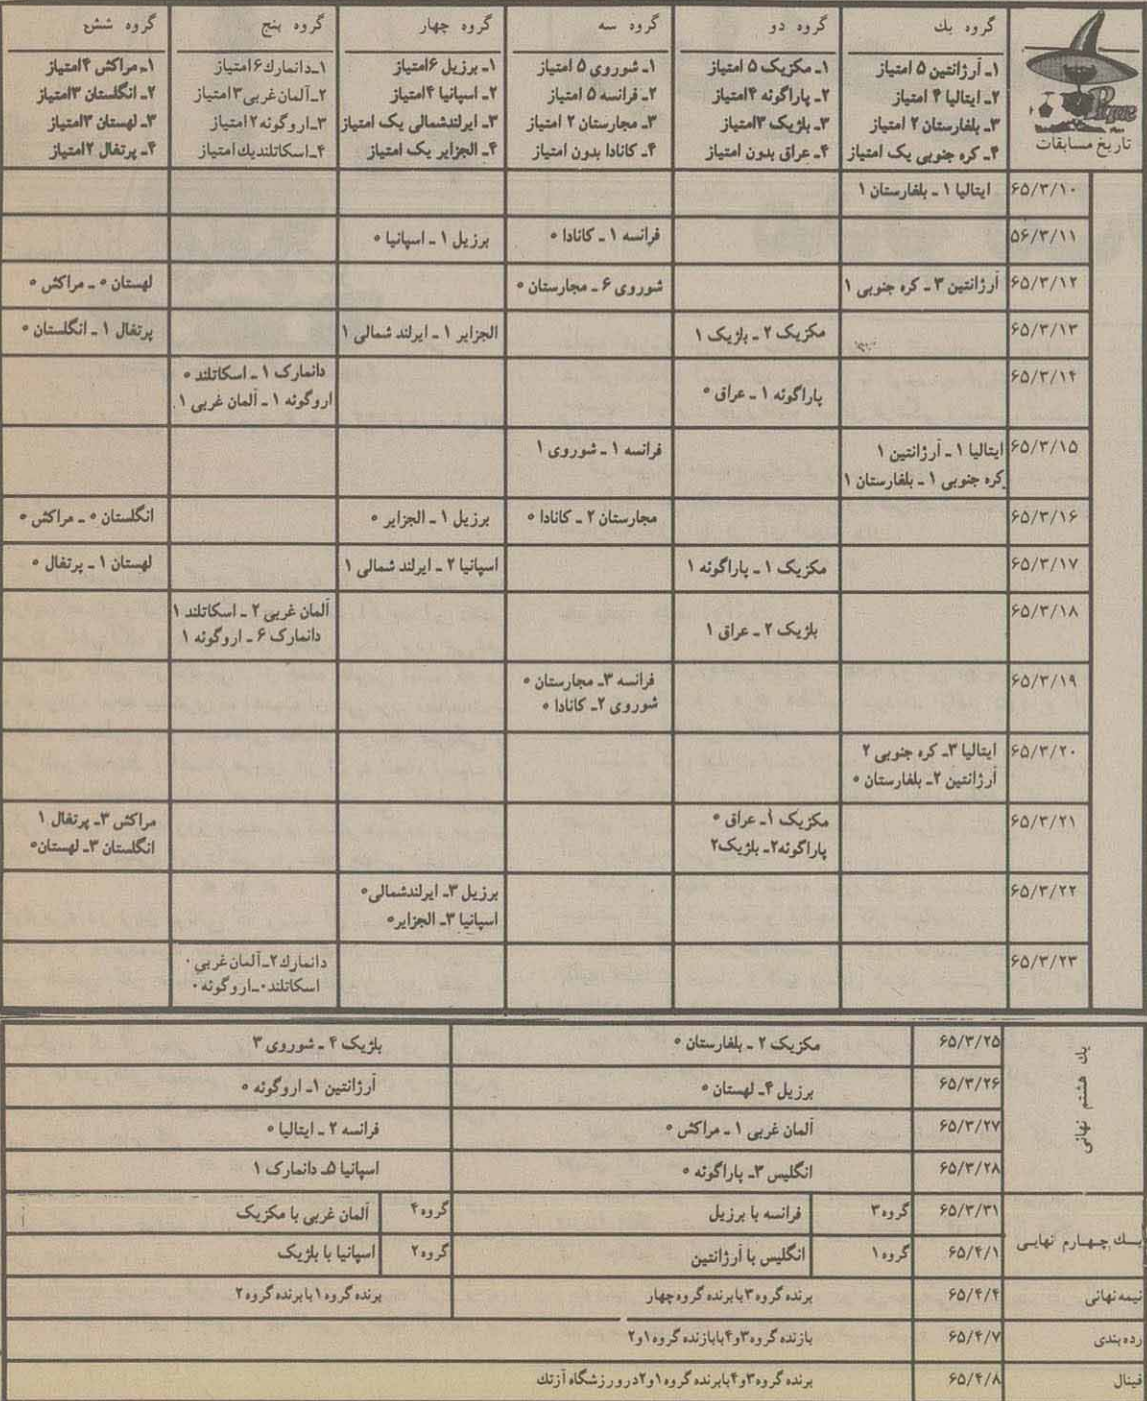 گروه یك
گروه دو
گروه سه
گروه چهار
گروه پنج
گروه شش
تاریخ مسابقات
۱ـ آرژانتین ۵ امتیاز
۲ـ ایتالیا ۴ امتیاز
۳ـ بلغارستان ۲ امتیاز
۴ـ کره جنوبی یک امتیاز
۱ـ مکزیک ۵ امتیاز
۲ـ پاراگوئه ۴امتیاز
۳ـ بلژیک ۳امتیاز
۴ـ عراق بدون امتیاز
۱ـ شوروی ۵ امتیاز
۲ـ فرانسه ۵ امتیاز
۳ـ مجارستان ۲ امتیاز
۴ـ کانادا بدون امتیاز
۱ـ برزیل ۶امتیاز
۲ـ اسپانیا ۴امتیاز
۳ـ ایرلندشمالی یک امتیاز
۴ـ الجزایر یک امتیاز
۱ـدانمارك۶امتیاز
۲ـآلمان‌غربی۳امتیاز
۳ـاروگوئه۲امتیاز
۴ـاسکاتلندیك‌امتیاز
۱ـ مراکش ۴امتیاز
۲ـ انگلستان ۳امتیاز
۳ـ لهستان ۳امتیاز
۴ـ پرتغال ۲امتیاز
۶۵/۳/۱۰
ایتالیا ۱ ـ بلغارستان ۱
۵۶/۳/۱۱
فرانسه ۱ ـ کانادا ۰
برزیل ۱ ـ اسپانیا ۰
۶۵/۳/۱۲
آرژانتین ۳ ـ کره جنوبی ۱
شوروی ۶ ـ مجارستان ۰
لهستان ۰ ـ مراکش ۰
۶۵/۳/۱۳
مکزیک ۲ ـ بلژیک ۱
الجزایر ۱ ـ ایرلند شمالی ۱
پرتغال ۱ ـ انگلستان ۰
۶۵/۳/۱۴
پاراگوئه ۱ ـ عراق ۰
دانمارک ۱ ـ اسکاتلند ۰
اروگوئه ۱ ـ آلمان غربی ۱
۶۵/۳/۱۵
ایتالیا ۱ ـ آرژانتین ۱
کره جنوبی ۱ ـ بلغارستان ۱
فرانسه ۱ ـ شوروی ۱
۶۵/۳/۱۶
مجارستان ۲ ـ کانادا ۰
برزیل ۱ ـ الجزایر ۰
انگلستان ۰ ـ مراکش ۰
۶۵/۳/۱۷
مکزیک ۱ ـ پاراگوئه ۱
اسپانیا ۲ ـ ایرلند شمالی ۱
لهستان ۱ ـ پرتغال ۰
۶۵/۳/۱۸
بلژیک ۲ ـ عراق ۱
آلمان غربی ۲ ـ اسکاتلند ۱
دانمارک ۶ ـ اروگوئه ۱
۶۵/۳/۱۹
فرانسه ۳ـ مجارستان ۰
شوروی ۲ـ کانادا ۰
۶۵/۳/۲۰
ایتالیا ۳ـ کره جنوبی ۲
آرژانتین ۲ـ بلغارستان ۰
۶۵/۳/۲۱
مکزیک ۱ـ عراق ۰
پاراگوئه۲ـ بلژیک۲
مراکش ۳ـ پرتغال ۱
انگلستان ۳ـ لهستان۰
۶۵/۳/۲۲
برزیل ۳ـ ایرلندشمالی۰
اسپانیا ۳ـ الجزایر۰
۶۵/۳/۲۳
دانمارك۲ـآلمان‌غربی۰
اسکاتلند۰ـاروگوئه۰
یك هشتم نهائی
۶۵/۳/۲۵
مکزیک ۲ ـ بلغارستان ۰
بلژیک ۴ ـ شوروی ۳
۶۵/۳/۲۶
برزیل ۴ـ لهستان ۰
آرژانتین ۱ـ اروگوئه ۰
۶۵/۳/۲۷
آلمان غربی ۱ ـ مراکش ۰
فرانسه ۲ ـ ایتالیا ۰
۶۵/۳/۲۸
انگلیس ۳ـ پاراگوئه ۰
اسپانیا ۵ـ دانمارک ۱
یـك چـهـارم نهایـی
۶۵/۳/۳۱
گروه۳
فرانسه با برزیل
گروه۴
آلمان غربی با مکزیک
۶۵/۴/۱
گروه۱
انگلیس با آرژانتین
گروه۲
اسپانیا با بلژیک
نیمه نهائی
۶۵/۴/۴
برنده گروه ۳بابرنده گروه چهار
برنده گروه ۱بابرنده گروه ۲
رده بندی
۶۵/۴/۷
بازنده گروه ۳و۴بابازنده گروه ۱و۲
فینال
۶۵/۴/۸
برنده گروه ۳و۴بابرنده گروه ۱و۲درورزشگاه آزتك